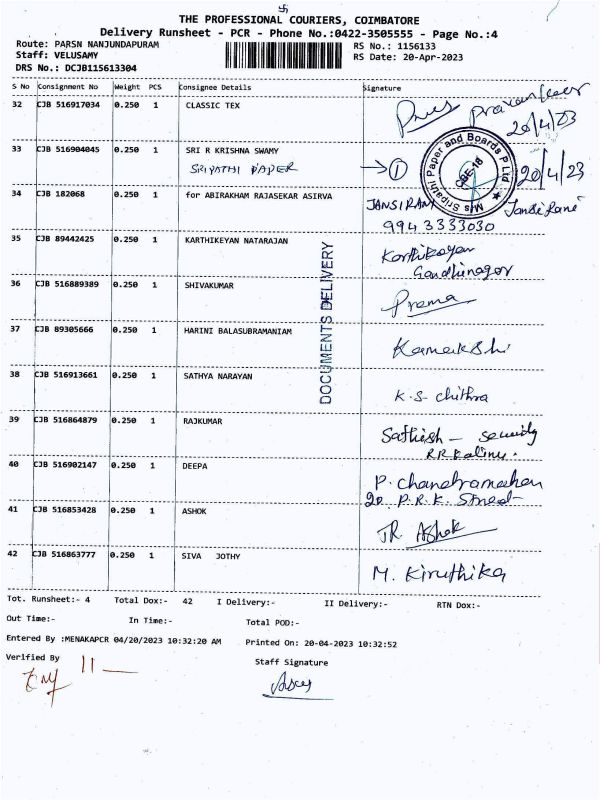 卐
THE PROFESSIONAL COURIERS, COIMBATORE
Delivery Runsheet - PCR - Phone No.:0422-3505555 - Page No.:4
Route: PARSN NANJUNDAPURAM RS No.: 1156133
Staff: VELUSAMY RS Date: 20-Apr-2023
DRS No.: DCJB115613304
S No Consignment No Weight PCS Consignee Details Signature
32 CJB 516917034 0.250 1 CLASSIC TEX
20/4/23
33 CJB 516904045 0.250 1 SRI R KRISHNA SWAMY
SRIPATHI PAPER → 1 20/4/23
M/s Sripathi Paper and Boards P Ltd
CBE-18
34 CJB 182068 0.250 1 for ABIRAKHAM RAJASEKAR ASIRVA JANSI RANI Jansi Rani
9943333030
35 CJB 89442425 0.250 1 KARTHIKEYAN NATARAJAN Karthikeyan
Gandhinagar
36 CJB 516889389 0.250 1 SHIVAKUMAR Prema
DOCUMENTS DELIVERY
37 CJB 89305666 0.250 1 HARINI BALASUBRAMANIAM Kamakshi
38 CJB 516913661 0.250 1 SATHYA NARAYAN K.S- chithra
39 CJB 516864879 0.250 1 RAJKUMAR Sathish - security
40 CJB 516902147 0.250 1 DEEPA P. Chandramohan
20 P.R.K. Street
41 CJB 516853428 0.250 1 ASHOK JR. Ashok
42 CJB 516863777 0.250 1 SIVA JOTHY M. Kiruthika
Tot. Runsheet:- 4 Total Dox:- 42 I Delivery:- II Delivery:- RTN Dox:-
Out Time:- In Time:- Total POD:-
Entered By :MENAKAPCR 04/20/2023 10:32:20 AM Printed On: 20-04-2023 10:32:52
Verified By Staff Signature